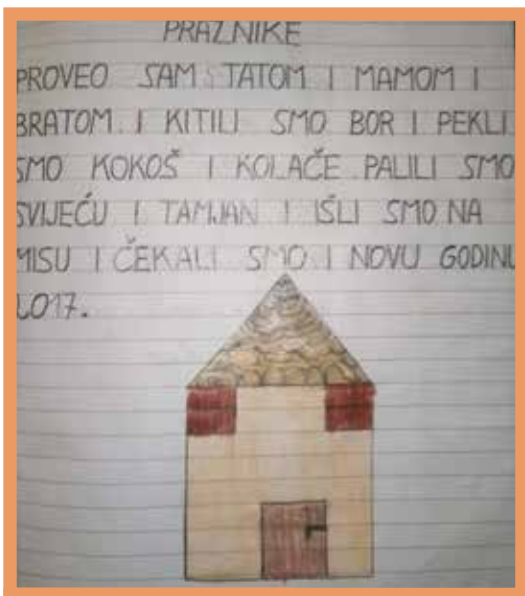 PRAZNIKE
PROVEO SAM S TATOM I MAMOM I
BRATOM. I KITILI SMO BOR I PEKLI
SMO KOKOŠ I KOLAČE PALILI SMO
SVIJEĆU I TAMJAN I IŠLI SMO NA
MISU I ČEKALI SMO I NOVU GODINU
2017.